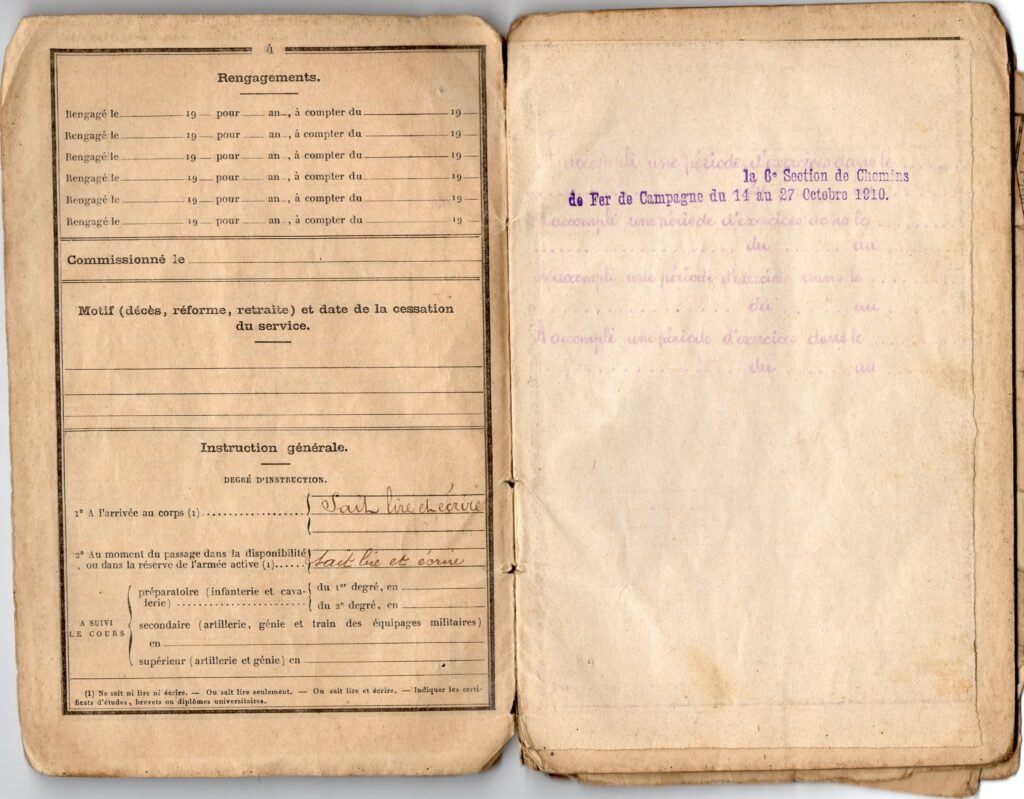 4
Rengagements.
Rengagé le 19 — pour an , à compter du 19
Rengagé le 19 — pour an , à compter du 19
Rengagé le 19 — pour an , à compter du 19
Rengagé le 19 — pour an , à compter du 19
Rengagé le 19 — pour an , à compter du 19
Rengagé le 19 — pour an , à compter du 19
Commissionné le
Motif (décès, réforme, retraite) et date de la cessation
du service.
Instruction générale.
DEGRÉ D'INSTRUCTION.
1° A l'arrivée au corps (1).................. Sait lire et écrire
2° Au moment du passage dans la disponibilité
ou dans la réserve de l'armée active (1)...... sait lire et écrire
A SUIVI
LE COURS
préparatoire (infanterie et cava-
lerie) ..................
du 1er degré, en
du 2e degré, en
secondaire (artillerie, génie et train des équipages militaires)
en
supérieur (artillerie et génie) en
(1) Ne sait ni lire ni écrire. — Ou sait lire seulement. — Ou sait lire et écrire. — Indiquer les certi-
ficats d'études, brevets ou diplômes universitaires.
A accompli une période d'exercices dans le
la 6e Section de Chemins
de Fer de Campagne du 14 au 27 Octobre 1910.
A accompli une période d'exercices dans le ........
.................. du ...... au
A accompli une période d'exercices dans le ........
.................. du ...... au
A accompli une période d'exercices dans le ........
.................. du ...... au